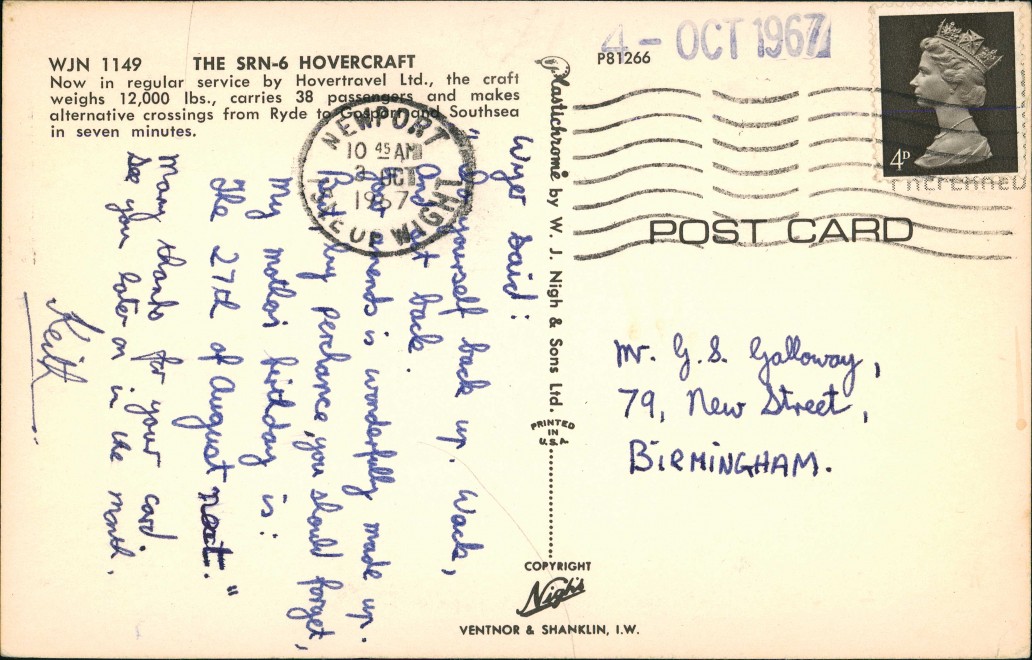 WJN 1149 THE SRN-6 HOVERCRAFT
Now in regular service by Hovertravel Ltd., the craft
weighs 12,000 lbs., carries 38 passengers and makes
alternative crossings from Ryde to Gosport and Southsea
in seven minutes.
4 - OCT 1967
P81266
4D
NEWPORT
10 45 AM
OCT
1967
ISLE OF WIGHT
POST CARD
Plastichrome by W. J. Nigh & Sons Ltd.
PRINTED
IN
U.S.A.
Mr. G. S. Galloway,
79, New Street,
BIRMINGHAM.
Wyer said:
yourself back up. Wack,
And back.
is wonderfully made up.
But, by perchance, you should forget,
My mother's birthday is:
The 27th of August next."
Many thanks for your card.
See you later on in the month.
Keith
COPYRIGHT
Nigh's
VENTNOR & SHANKLIN, I.W.